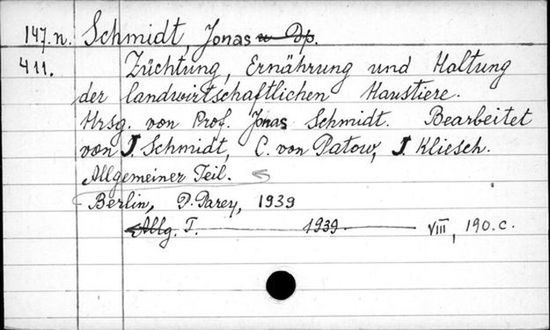 147.n. Schmidt, Jonas u Dp.
411. Züchtung, Ernährung und Haltung
der landwirtschaftlichen Haustiere.
Hrsg. von Prof. Jonas Schmidt. Bearbeitet
von J. Schmidt, C. von Patow, J. Kliesch.
Allgemeiner Teil.
Berlin, P. Parey, 1939
Allg. T. 1939 VIII, 190.c.